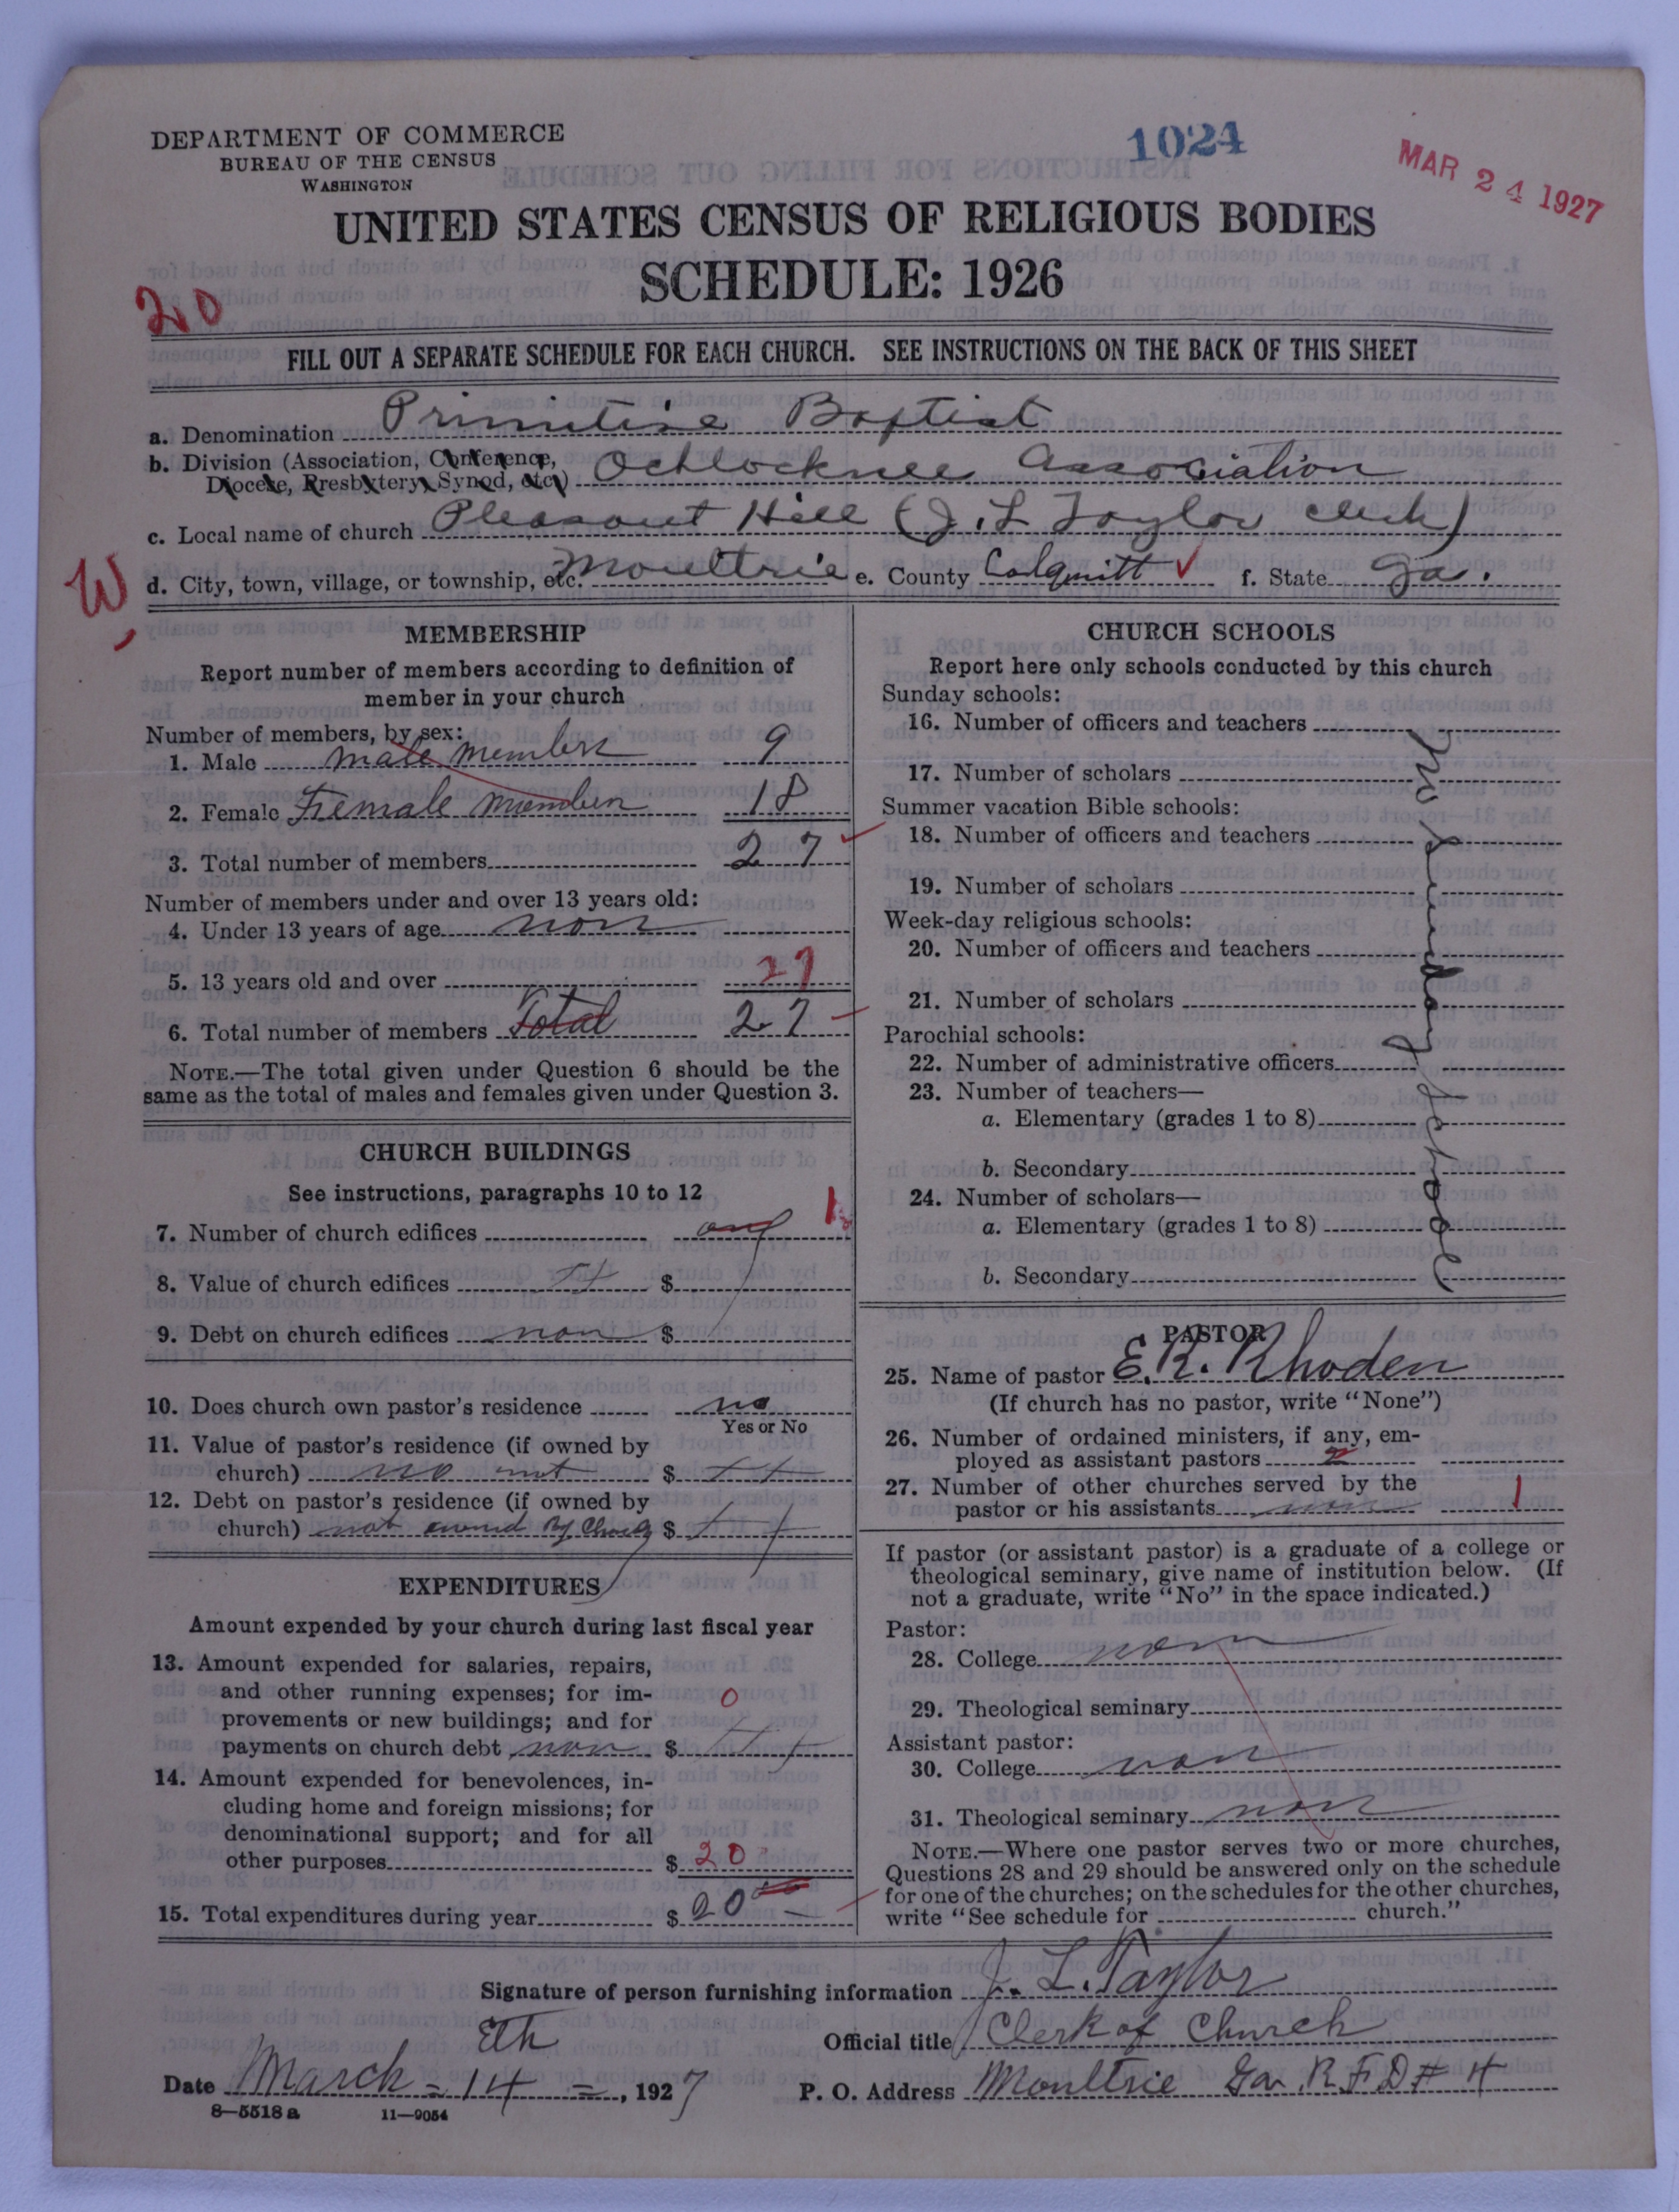 DEPARTMENT OF COMMERCE
BUREAU OF THE CENSUS
WASHINGTON
1024
MAR 24 1927
UNITED STATES CENSUS OF RELIGIOUS BODIES
SCHEDULE: 1926
20
FILL OUT A SEPARATE SCHEDULE FOR EACH CHURCH. SEE INSTRUCTIONS ON THE BACK OF THIS SHEET
a. Denomination Primitive Baptist
b. Division (Association, Conference, Diocese, Presbytery, Synod, etc.) Ochlocknee Association
c. Local name of church Pleasant Hill (J. L Taylor clerk)
W
d. City, town, village, or township, etc. Moultrie e. County Colquitt ✓ f. State Ga.
MEMBERSHIP
Report number of members according to definition of
member in your church
Number of members, by sex:
1. Male male members 9
2. Female Female members 18
3. Total number of members 27
Number of members under and over 13 years old:
4. Under 13 years of age non
5. 13 years old and over 27
6. Total number of members Total 27
NOTE.—The total given under Question 6 should be the
same as the total of males and females given under Question 3.
CHURCH BUILDINGS
See instructions, paragraphs 10 to 12
7. Number of church edifices 1
8. Value of church edifices $
9. Debt on church edifices non $
10. Does church own pastor's residence no
Yes or No
11. Value of pastor's residence (if owned by
church) no not $
12. Debt on pastor's residence (if owned by
church) not owned By Church $
EXPENDITURES
Amount expended by your church during last fiscal year
13. Amount expended for salaries, repairs,
and other running expenses; for im-
provements or new buildings; and for
payments on church debt non $ 0
14. Amount expended for benevolences, in-
cluding home and foreign missions; for
denominational support; and for all
other purposes $ 20
15. Total expenditures during year $ 20 00
CHURCH SCHOOLS
Report here only schools conducted by this church
Sunday schools:
16. Number of officers and teachers
17. Number of scholars
Summer vacation Bible schools:
18. Number of officers and teachers
19. Number of scholars
Week-day religious schools:
20. Number of officers and teachers
21. Number of scholars
Parochial schools:
22. Number of administrative officers
23. Number of teachers—
a. Elementary (grades 1 to 8)
b. Secondary
24. Number of scholars—
a. Elementary (grades 1 to 8)
b. Secondary
No Sunday School
PASTOR
25. Name of pastor E. R. Rhoden
(If church has no pastor, write "None")
26. Number of ordained ministers, if any, em-
ployed as assistant pastors
27. Number of other churches served by the
pastor or his assistants non 1
If pastor (or assistant pastor) is a graduate of a college or
theological seminary, give name of institution below. (If
not a graduate, write "No" in the space indicated.)
Pastor:
28. College non
29. Theological seminary
Assistant pastor:
30. College non
31. Theological seminary non
NOTE.—Where one pastor serves two or more churches,
Questions 28 and 29 should be answered only on the schedule
for one of the churches; on the schedules for the other churches,
write "See schedule for church."
Signature of person furnishing information J. L. Taylor
Official title Clerk of Church
Date March - 14 Eth =, 1927 P. O. Address Moultrie Ga. R F D # 4
8—5518 a 11—9054